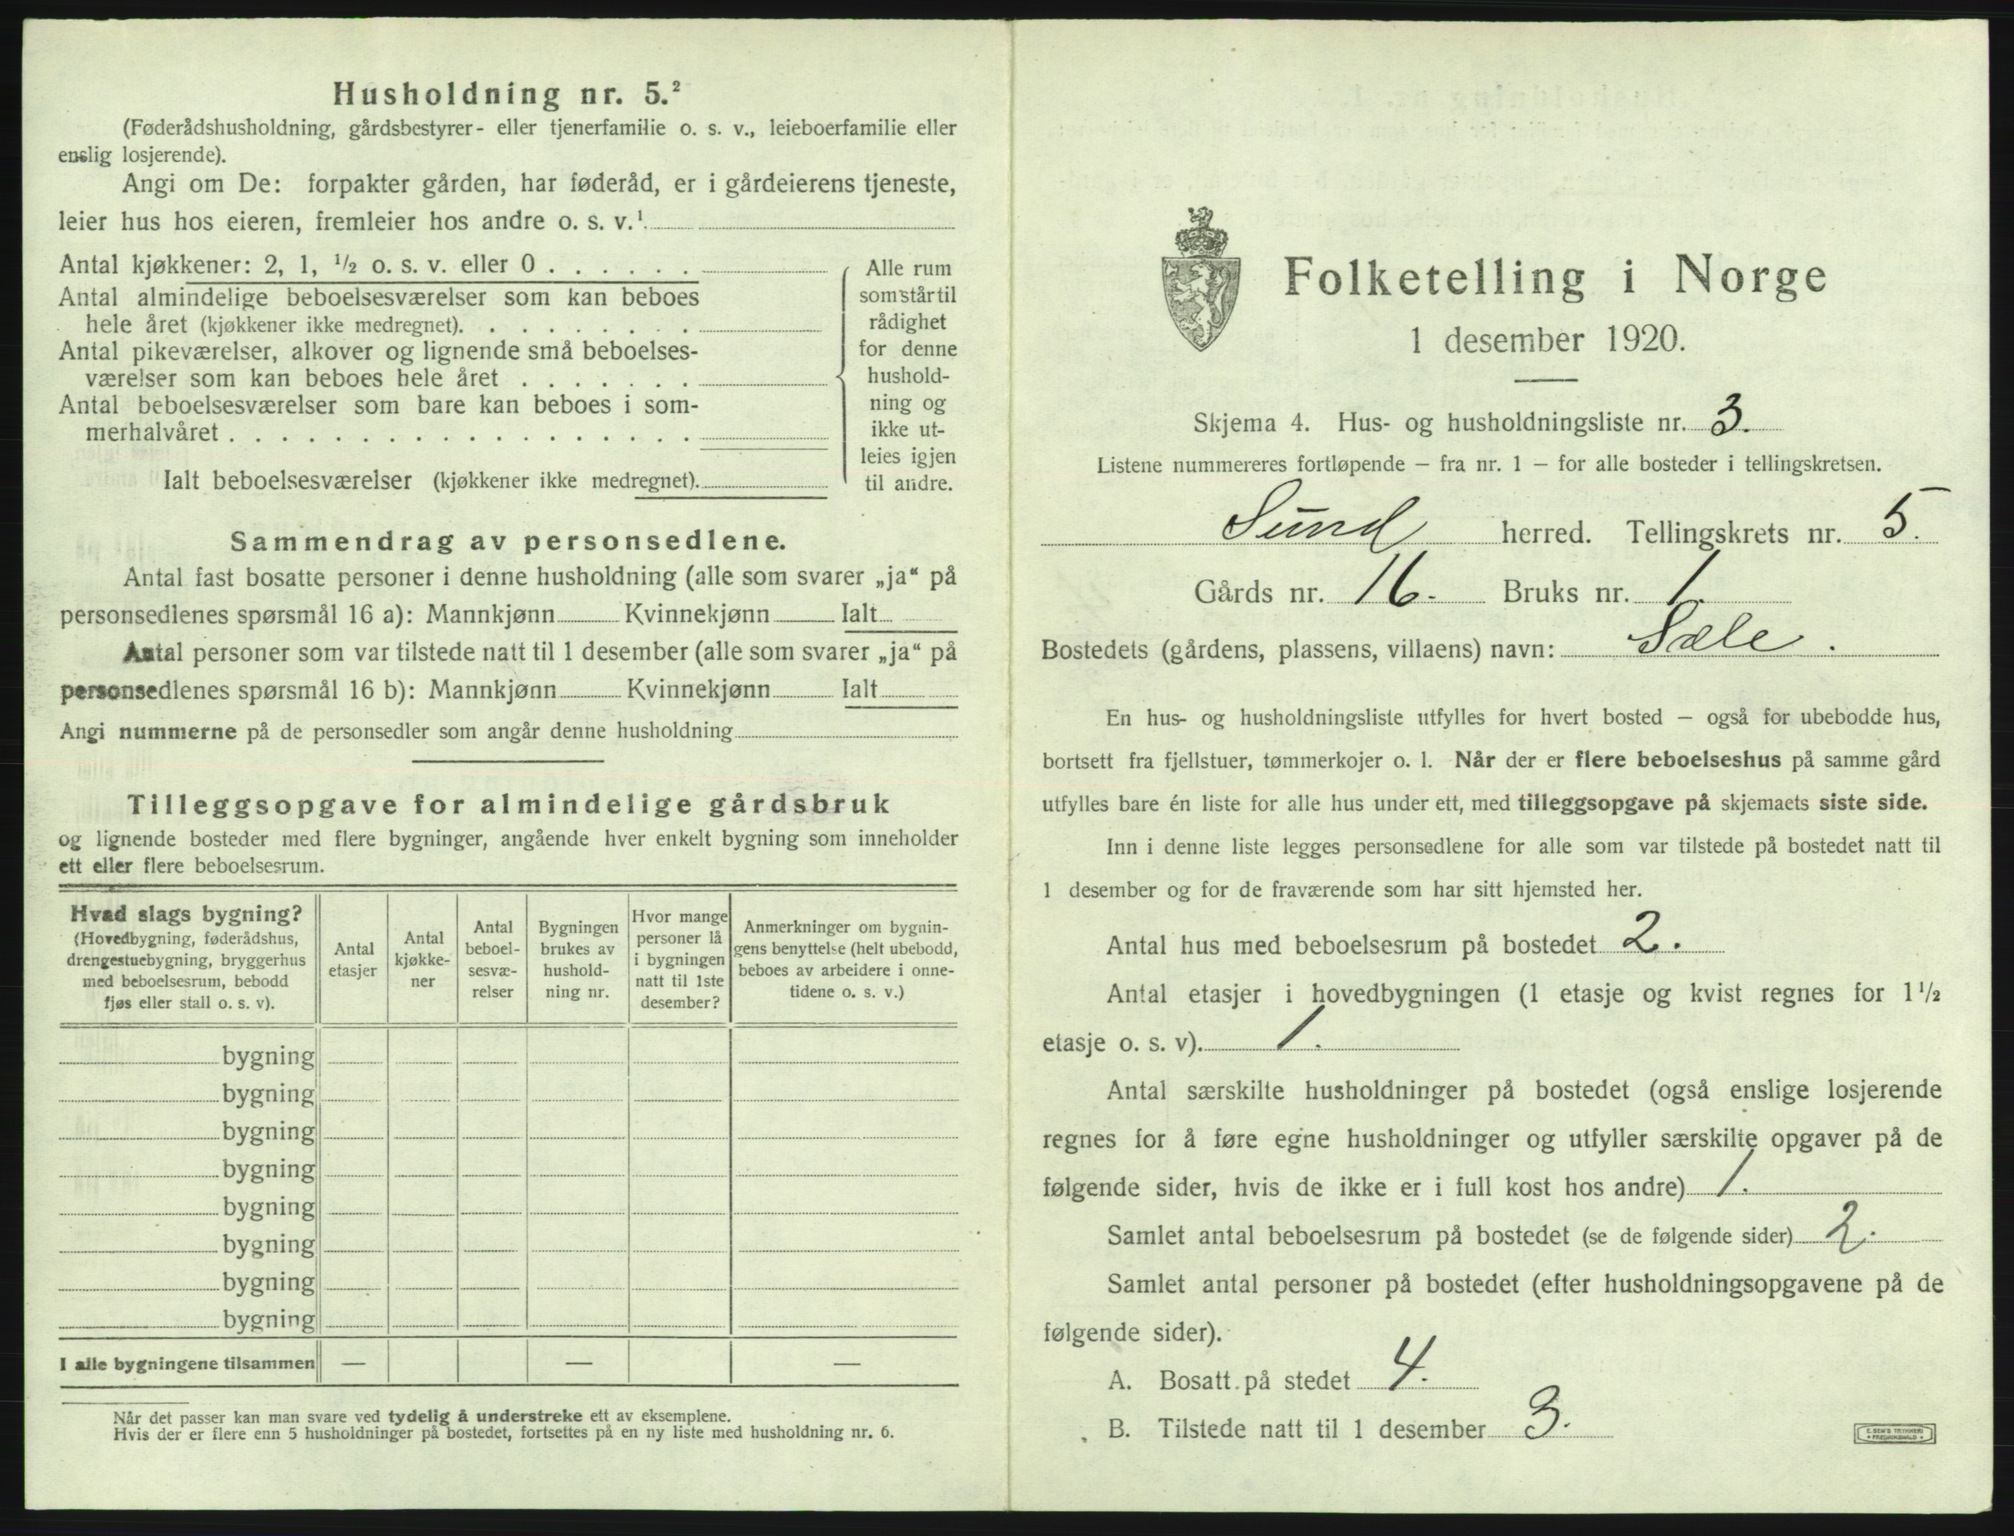 Husholdning nr. 5.²
(Føderådshusholdning, gårdsbestyrer- eller tjenerfamilie o. s. v., leieboerfamilie eller
enslig losjerende).
Angi om De: forpakter gården, har føderåd, er i gårdeierens tjeneste,
leier hus hos eieren, fremleier hos andre o. s. v.¹
Antal kjøkkener: 2, 1, ½ o. s. v. eller 0 . . . . . .
Antal almindelige beboelsesværelser som kan beboes
hele året (kjøkkener ikke medregnet). . . . . . . . .
Antal pikeværelser, alkover og lignende små beboelses-
værelser som kan beboes hele året . . . . . . .
Antal beboelsesværelser som bare kan beboes i som-
merhalvåret . . . . . . . . . . . . . . . . . .
Ialt beboelsesværelser (kjøkkener ikke medregnet).
Alle rum
som står til
rådighet
for denne
hushold-
ning og
ikke ut-
leies igjen
til andre.
Sammendrag av personsedlene.
Antal fast bosatte personer i denne husholdning (alle som svarer „ja“ på
personsedlenes spørsmål 16 a): Mannkjønn Kvinnekjønn Ialt
Antal personer som var tilstede natt til 1 desember (alle som svarer „ja“ på
personsedlenes spørsmål 16 b): Mannkjønn Kvinnekjønn Ialt
Angi nummerne på de personsedler som angår denne husholdning
Tilleggsopgave for almindelige gårdsbruk
og lignende bosteder med flere bygninger, angående hver enkelt bygning som inneholder
ett eller flere beboelsesrum.
Hvad slags bygning?
(Hovedbygning, føderådshus,
drengestuebygning, bryggerhus
med beboelsesrum, bebodd
fjøs eller stall o. s. v).
Antal
etasjer
Antal
kjøkke-
ner
Antal
beboel-
sesvæ-
relser
Bygningen
brukes av
hushold-
ning nr.
Hvor mange
personer lå
i bygningen
natt til 1ste
desember?
Anmerkninger om bygnin-
gens benyttelse (helt ubebodd,
beboes av arbeidere i onne-
tidene o. s. v.)
bygning
bygning
bygning
bygning
bygning
bygning
bygning
bygning
I alle bygningene tilsammen — — —
Når det passer kan man svare ved tydelig å understreke ett av eksemplene.
Hvis der er flere enn 5 husholdninger på bostedet, fortsettes på en ny liste med husholdning nr. 6.
Folketelling i Norge
1 desember 1920.
Skjema 4. Hus- og husholdningsliste nr. 3.
Listene nummereres fortløpende – fra nr. 1 – for alle bosteder i tellingskretsen.
Sund herred. Tellingskrets nr. 5.
Gårds nr. 16. Bruks nr. 1.
Bostedets (gårdens, plassens, villaens) navn: Sæle.
En hus- og husholdningsliste utfylles for hvert bosted – også for ubebodde hus,
bortsett fra fjellstuer, tømmerkojer o. l. Når der er flere beboelseshus på samme gård
utfylles bare én liste for alle hus under ett, med tilleggsopgave på skjemaets siste side.
Inn i denne liste legges personsedlene for alle som var tilstede på bostedet natt til
1 desember og for de fraværende som har sitt hjemsted her.
Antal hus med beboelsesrum på bostedet 2.
Antal etasjer i hovedbygningen (1 etasje og kvist regnes for 1½
etasje o. s. v). 1.
Antal særskilte husholdninger på bostedet (også enslige losjerende
regnes for å føre egne husholdninger og utfyller særskilte opgaver på de
følgende sider, hvis de ikke er i full kost hos andre) 1.
Samlet antal beboelsesrum på bostedet (se de følgende sider) 2.
Samlet antal personer på bostedet (efter husholdningsopgavene på de
følgende sider).
A. Bosatt på stedet 4.
B. Tilstede natt til 1 desember 3.